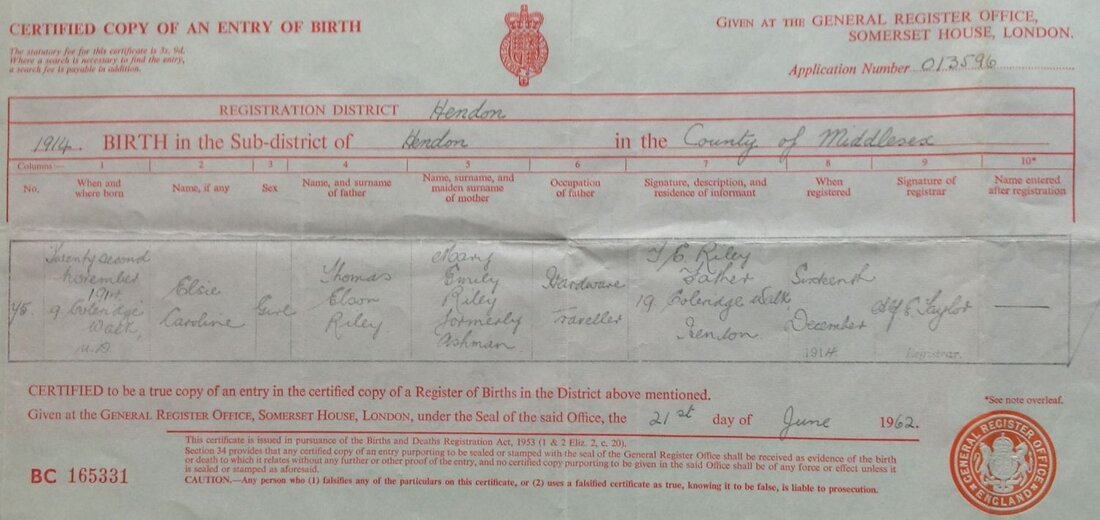 CERTIFIED COPY OF AN ENTRY OF BIRTH
GIVEN AT THE GENERAL REGISTER OFFICE,
SOMERSET HOUSE, LONDON.
The statutory fee for this certificate is 3s. 9d.
Where a search is necessary to find the entry,
a search fee is payable in addition.
Application Number 013596
REGISTRATION DISTRICT Hendon
1914. BIRTH in the Sub-district of Hendon in the County of Middlesex
Columns:— 1 2 3 4 5 6 7 8 9 10*
No. When and where born Name, if any Sex Name, and surname of father Name, surname, and maiden surname of mother Occupation of father Signature, description, and residence of informant When registered Signature of registrar Name entered after registration
Twenty second November 1914 9 Coleridge Walk, Elsie Caroline Girl Thomas Elson Riley Mary Emily Riley formerly Ashman Hardware Traveller T/E Riley Father 19 Coleridge Walk Hendon Sixteenth December 1914 Taylor Registrar.
CERTIFIED to be a true copy of an entry in the certified copy of a Register of Births in the District above mentioned.
*See note overleaf.
Given at the GENERAL REGISTER OFFICE, SOMERSET HOUSE, LONDON, under the Seal of the said Office, the 21st day of June 1962.
This certificate is issued in pursuance of the Births and Deaths Registration Act, 1953 (1 & 2 Eliz. 2, c. 20).
Section 34 provides that any certified copy of an entry purporting to be sealed or stamped with the seal of the General Register Office shall be received as evidence of the birth
or death to which it relates without any further or other proof of the entry, and no certified copy purporting to be given in the said Office shall be of any force or effect unless it
is sealed or stamped as aforesaid.
CAUTION.—Any person who (1) falsifies any of the particulars on this certificate, or (2) uses a falsified certificate as true, knowing it to be false, is liable to prosecution.
BC 165331
GENERAL REGISTER OFFICE
ENGLAND